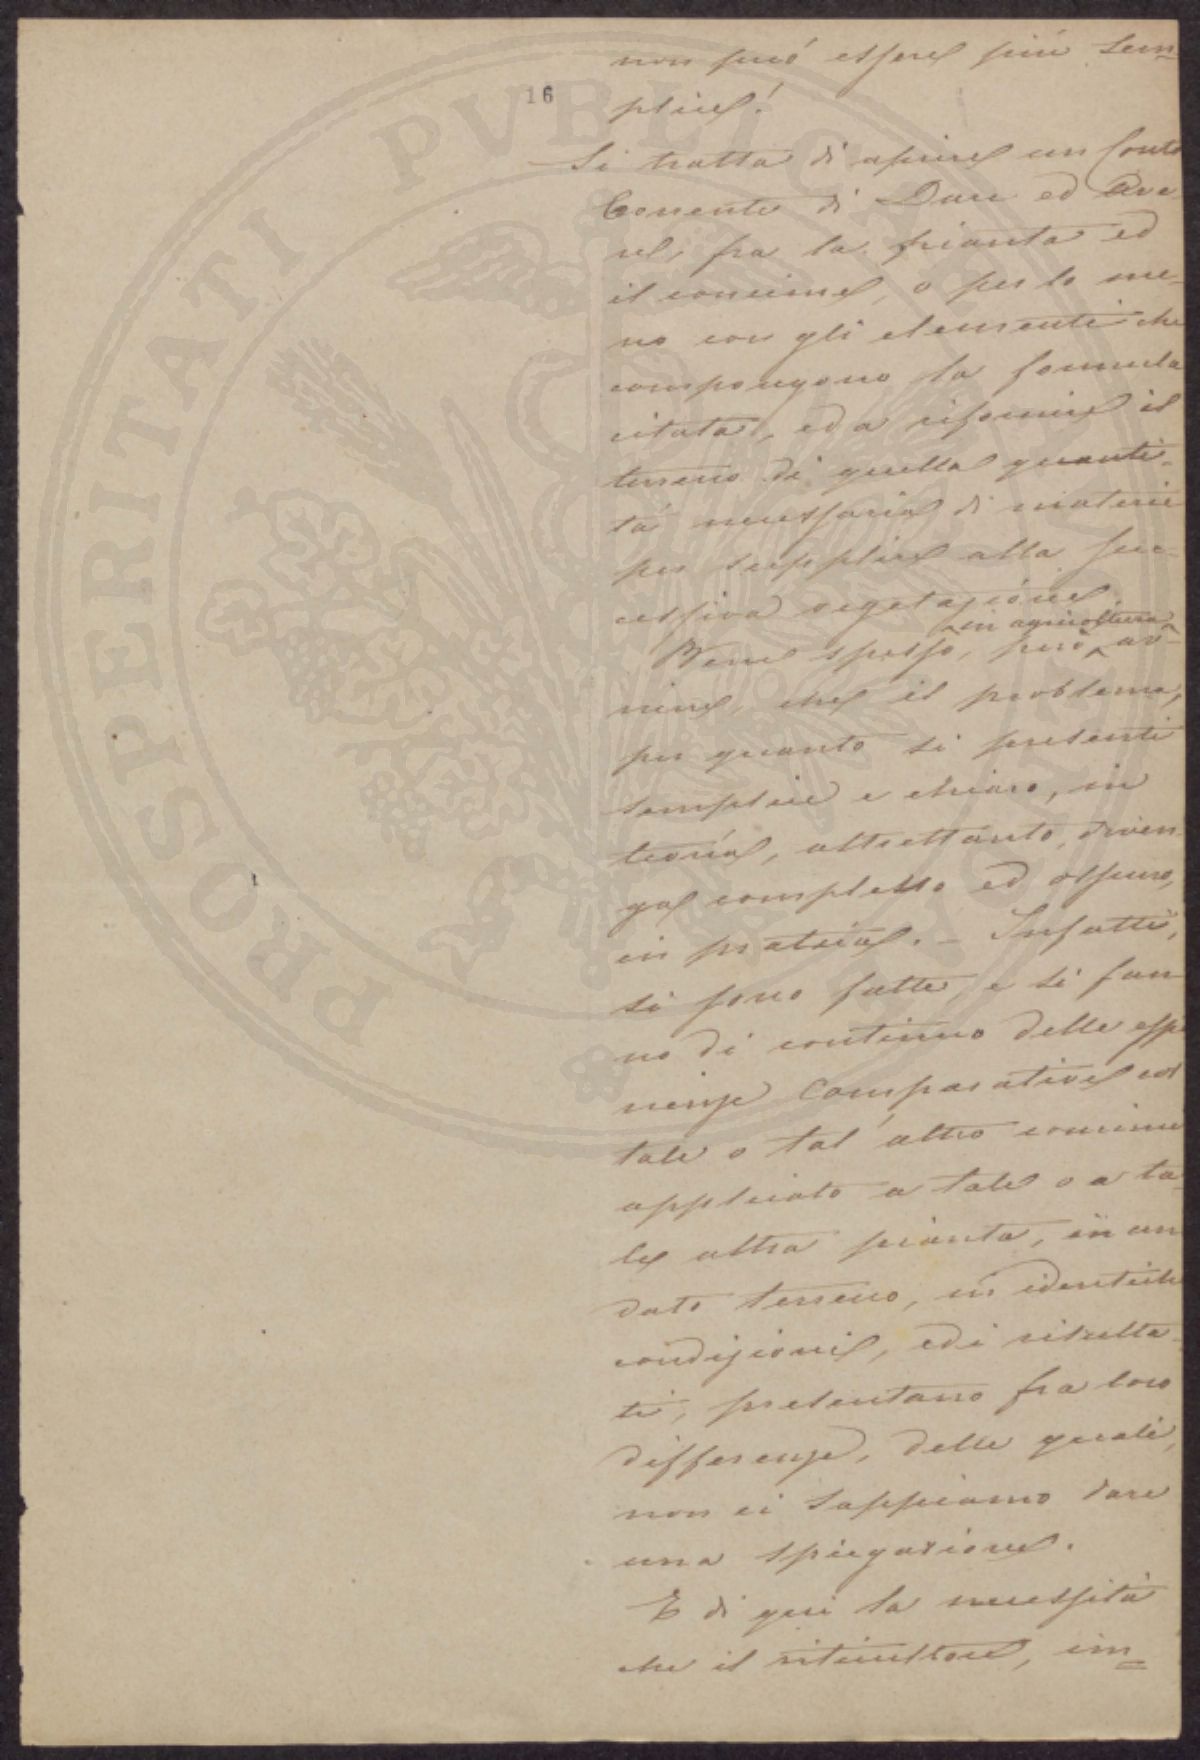 non puó essere piú sem=
16
plice!
Si tratta di aprire un Conto
Corrente di Dare ed Ave
re, fra la pianta ed
il concime, o per lo me-
no con gli elementi che
compongono la formula
citata, ed a rifornire il
terreno di quella quanti-
tá necessaria di materie
per supplire alla suc-
cessiva vegetazióne.
in agricoltura
Bene spesso, però, av-
viene, che il problema,
per quanto si presenti
semplice e chiaro, in
teoría, altrettanto, diven
ga complesso ed oscuro,
in pratica. - Infatti,
si sono fatte, e si fan-
no di continuo delle espe
rienze comparative col
tale o tal'altro concime
applicato a tale o a ta-
le altra pianta, in un
dato terreno, in identiche
condizioni, ed i risulta-
ti, presentano fra loro
differenze, delle quali,
non ci sappiamo dare
una spiegazione.
E di qui la necessitá
che il viticultore, im=
PROSPERITATI PVBLICAE